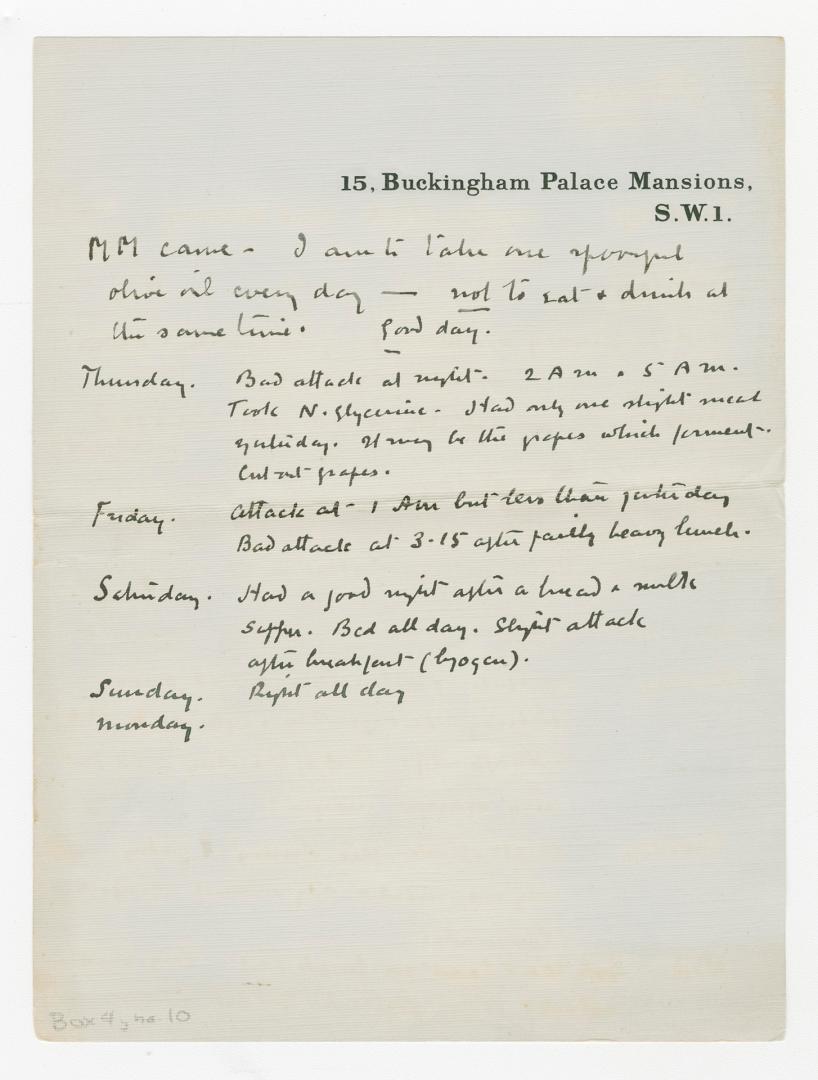 15, Buckingham Palace Mansions,
S.W.1.
MM came - I am to take one spoonful
olive oil every day — not to eat & drink at
the same time. Good day.
Thursday. Bad attack at night. 2 AM & 5 AM.
Took N. Glycerine - Had only one slight meal
yesterday. It may be the grapes which forment.
Cut out grapes.
Friday. Attack at 1 AM but less than yesterday
Bad attack at 3.15 after fairly heavy lunch.
Saturday. Had a good night after a bread & milk
supper. Bed all day. Slight attack
after breakfast (byogen).
Sunday. Right all day
Monday.
Box 4, no. 10